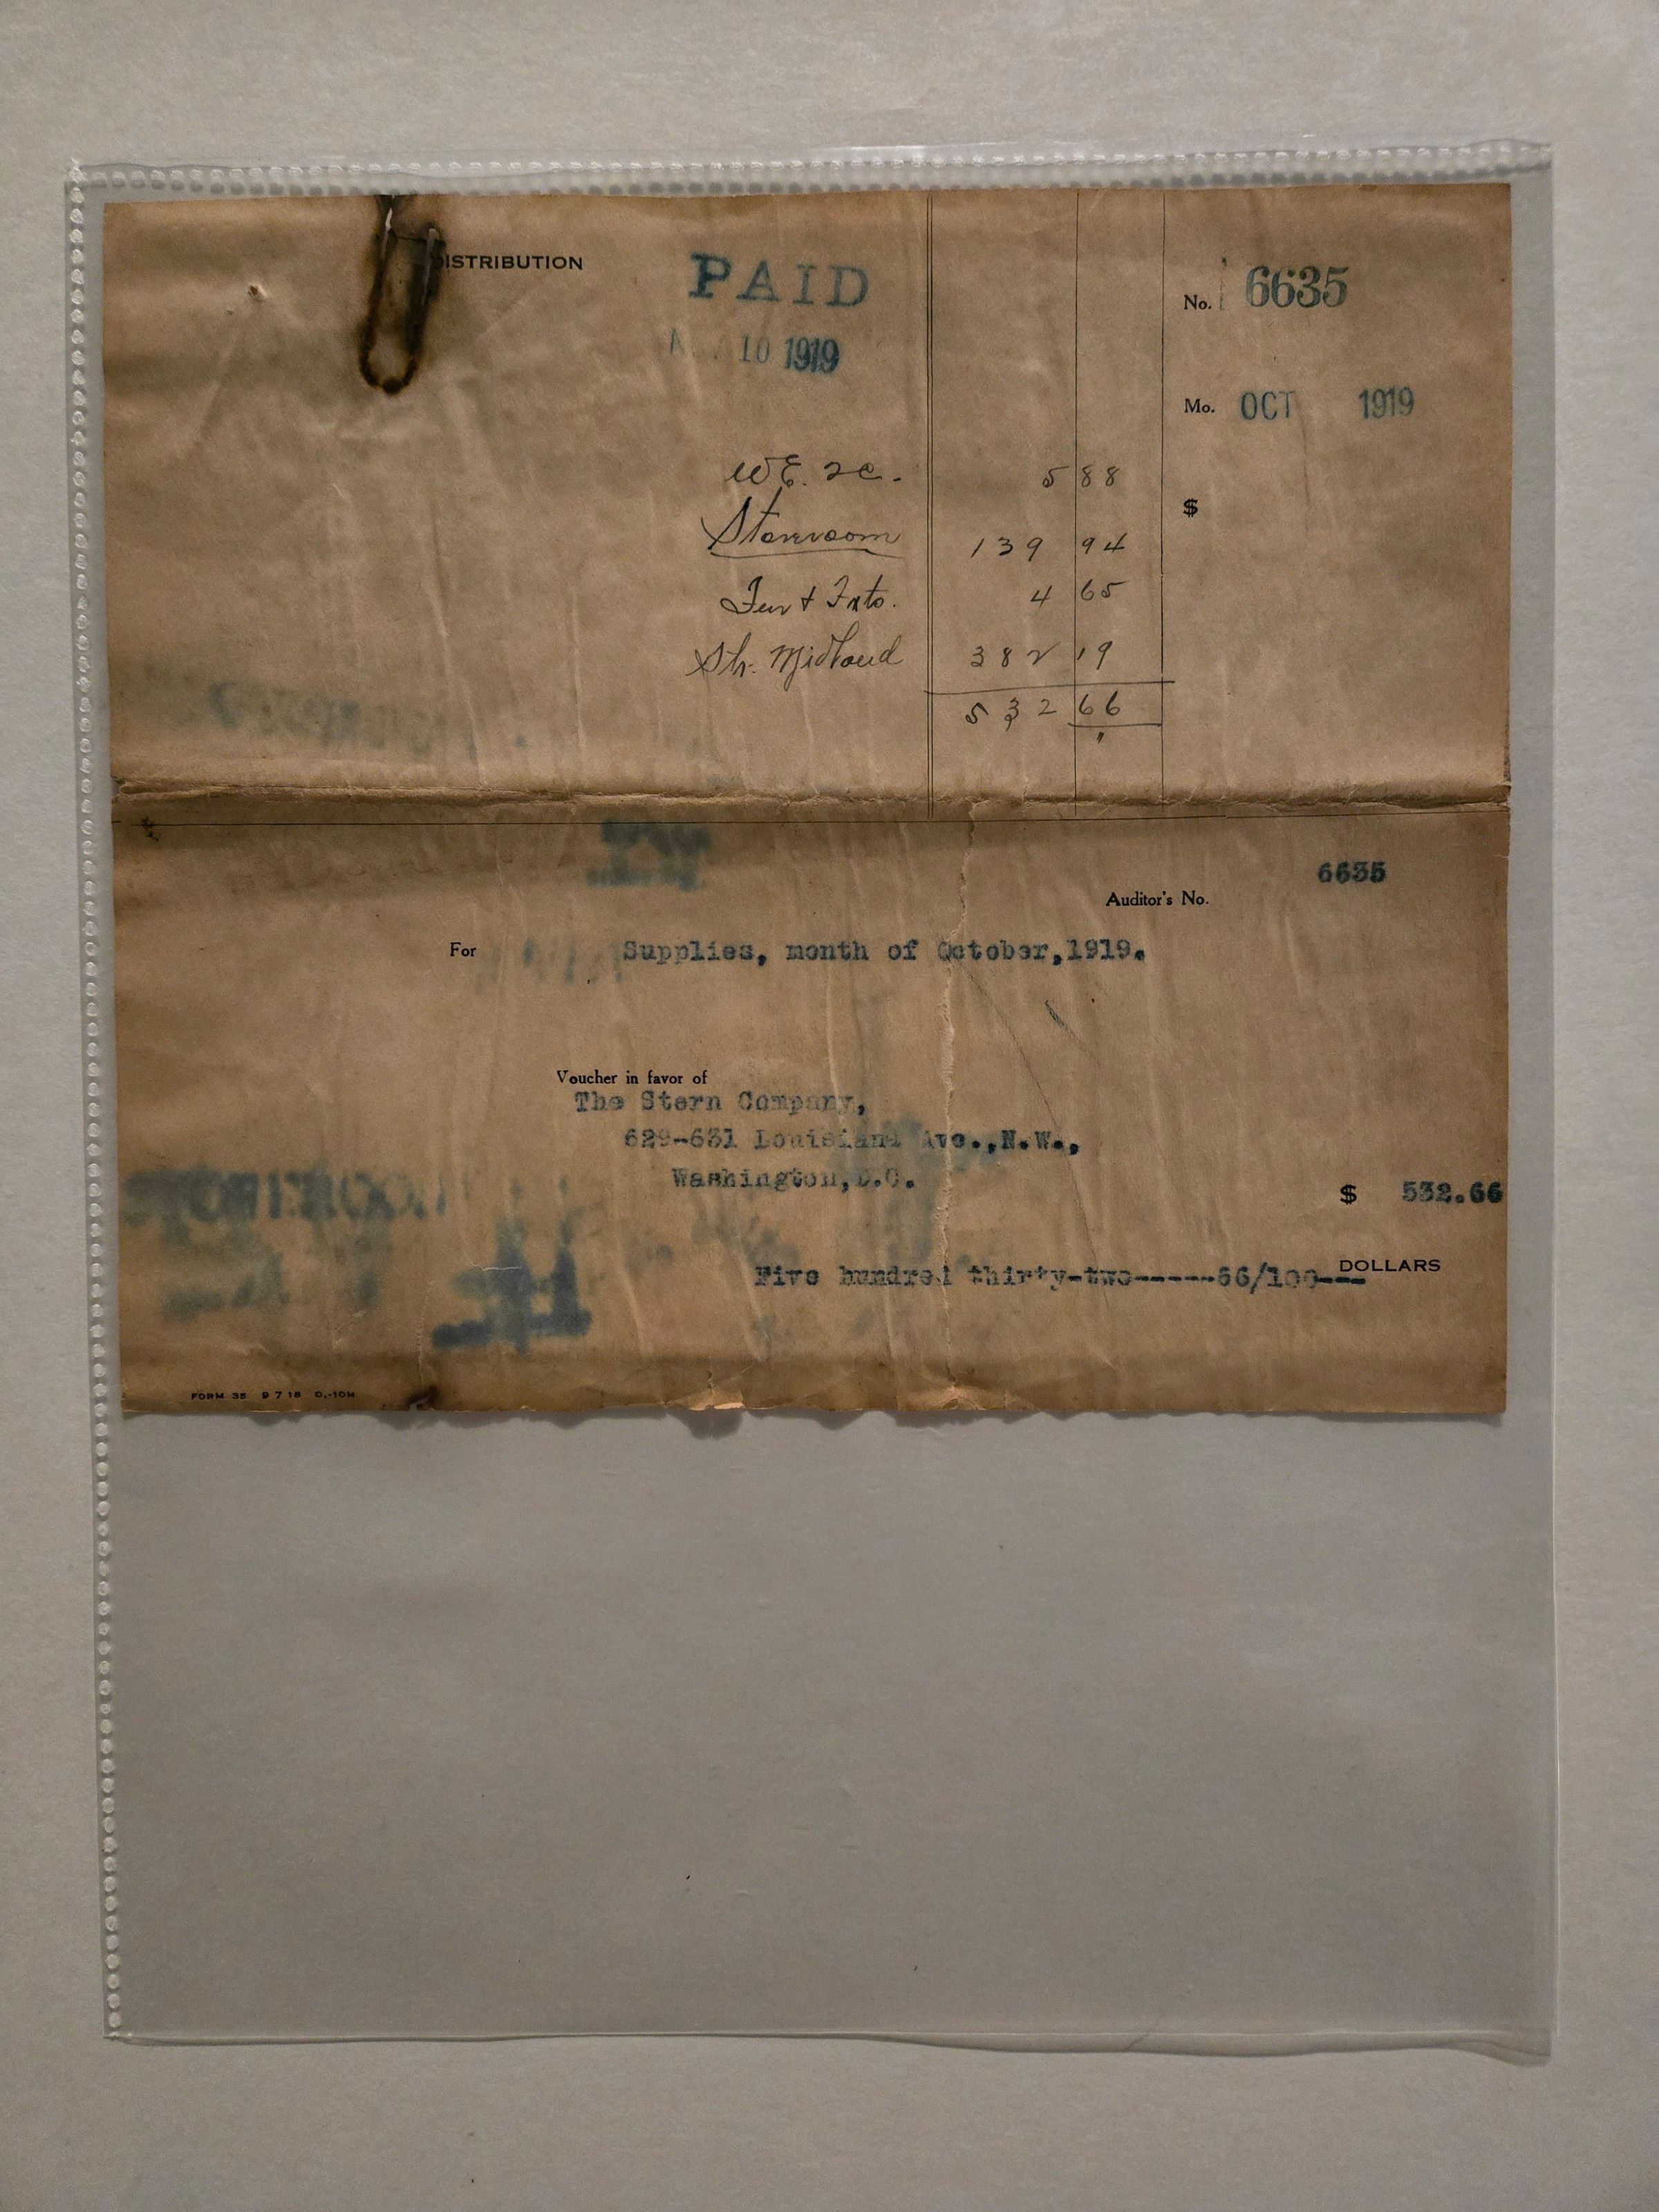 DISTRIBUTION
PAID
10 1919
No. 6635
Mo. OCT 1919
W.E. 2c. 5 88
$
Storeroom 139 94
Fur & Fxts. 4 65
Str. Midland 382 19
532 66
6635
Auditor's No.
For Supplies, month of October,1919.
Voucher in favor of
The Stern Company,
629-631 Louisiana Ave.,N.W.,
Washington,D.C.
$ 532.66
Five hundred thirty-two-----66/100--- DOLLARS
FORM 35 9 7 18 D,-10M